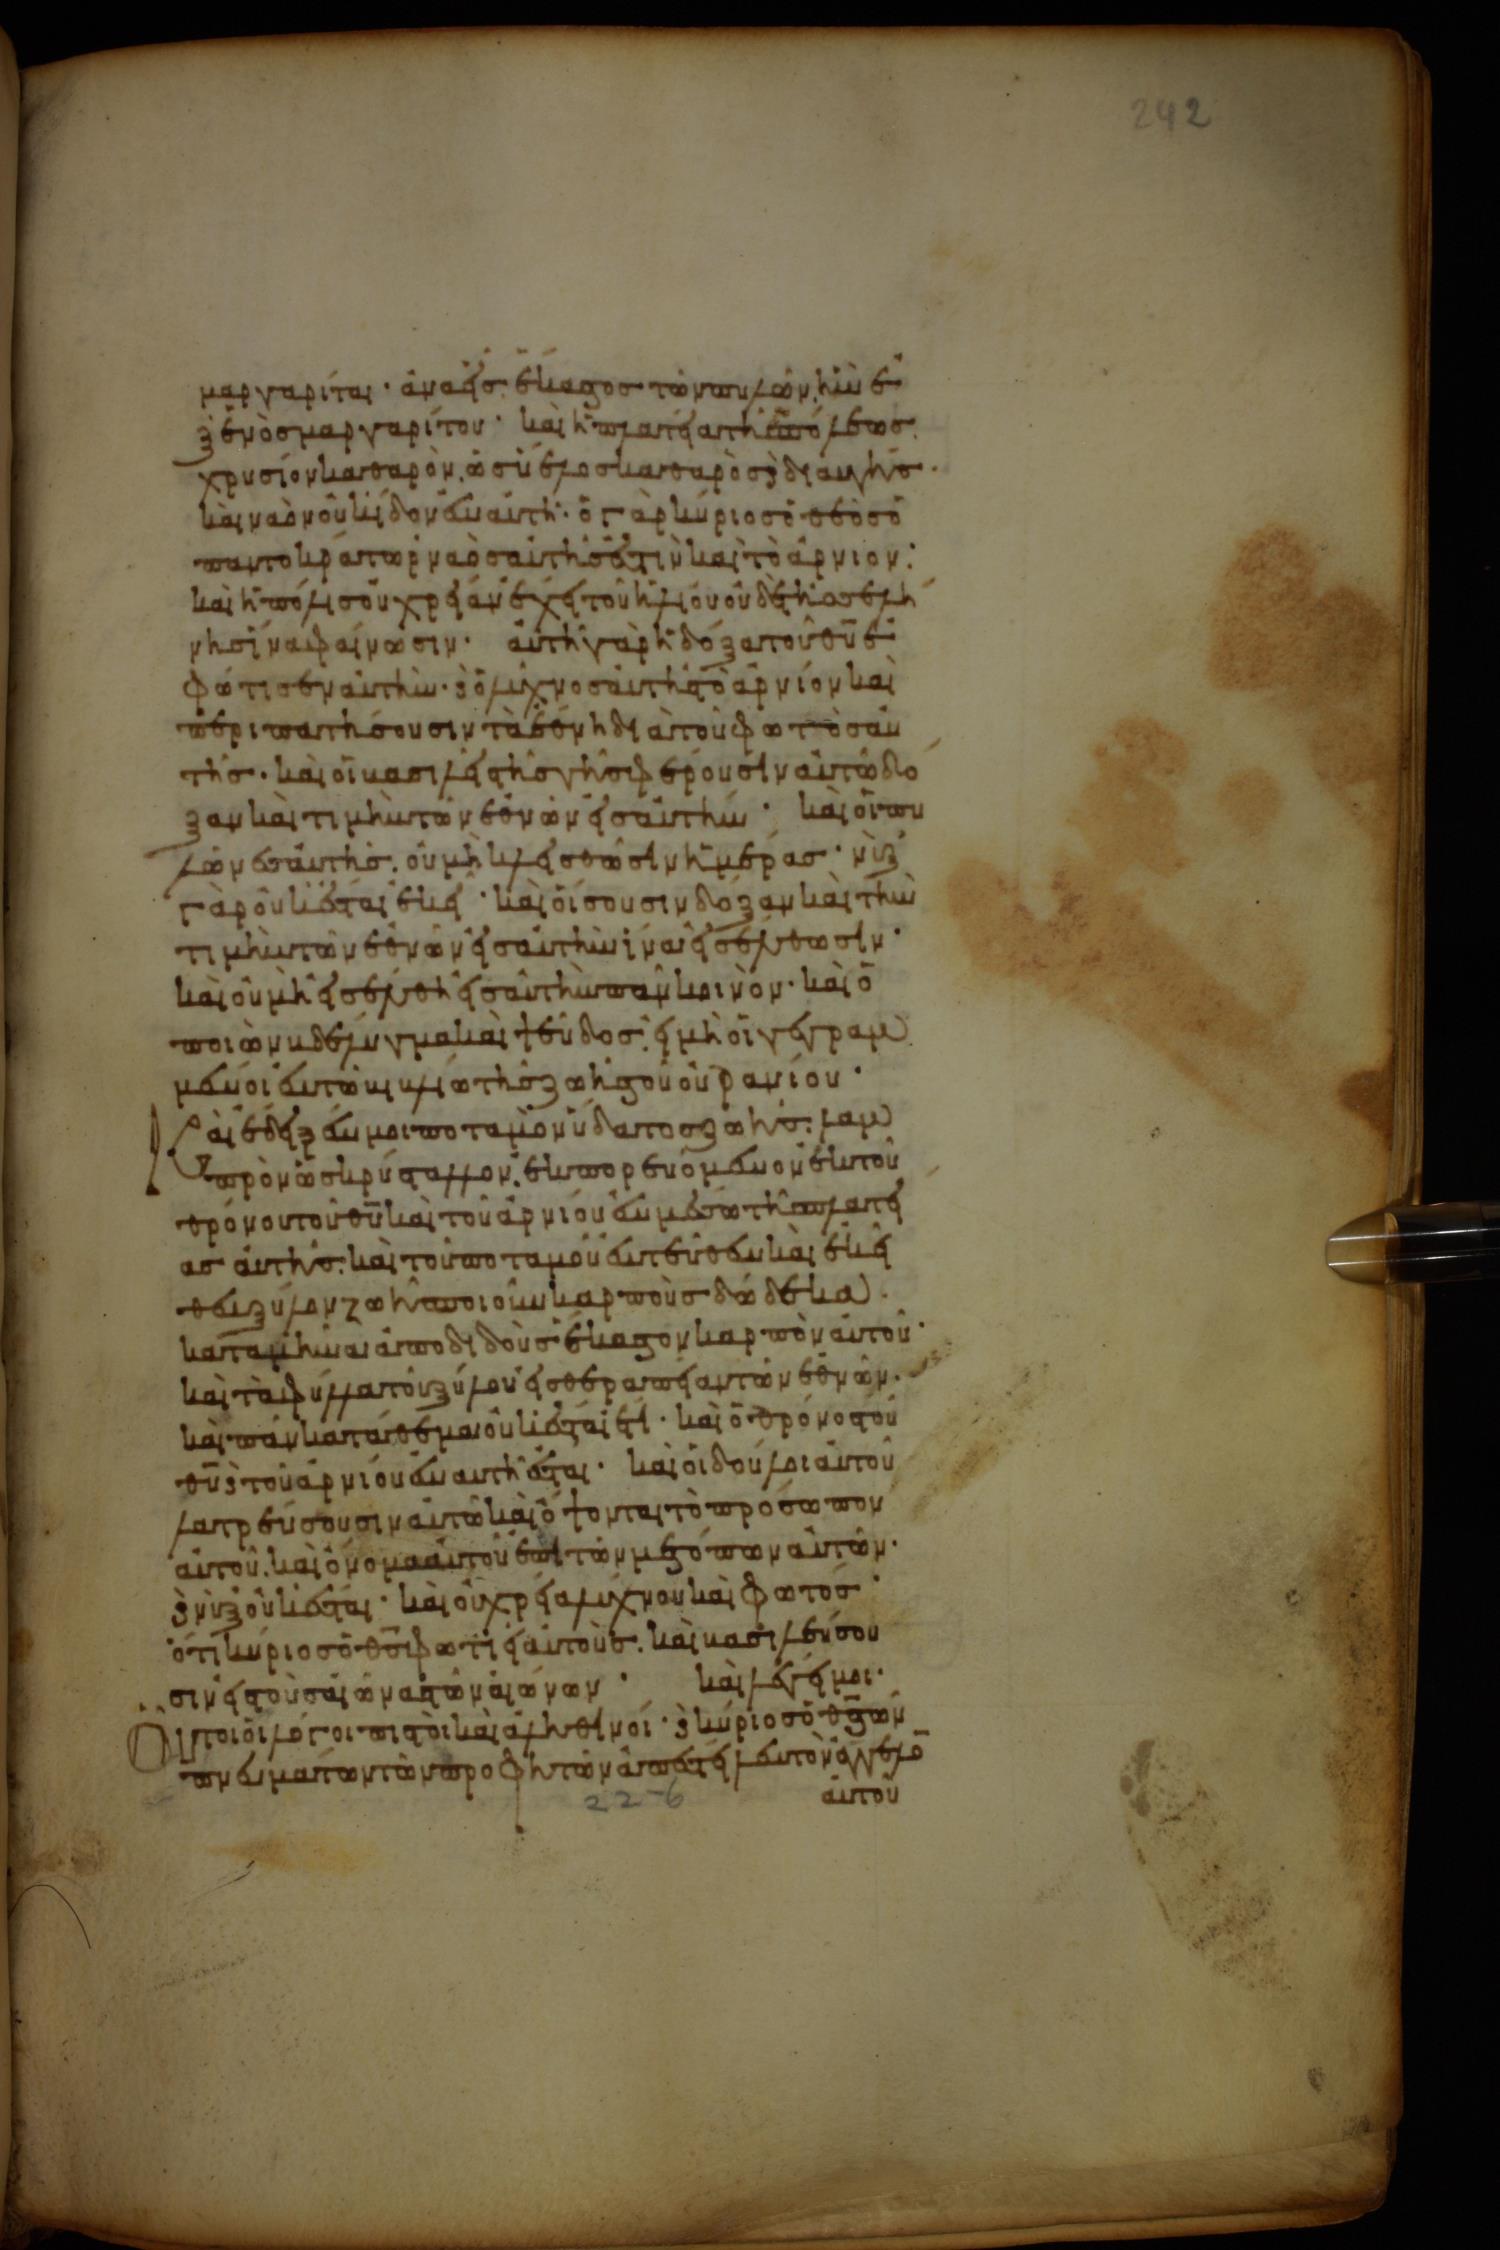 242
μαργαρίται· ἀναεῖς ἕκαστος τῶν πυλώνων ἦν ἐ
ξ ἑνὸς μαργαρίτου· καὶ ἡ πλατεῖα τῆς πόλεως
χρυσίον καθαρὸν, ὡς ὕελος καθαρὸς διαυγής·
καὶ ναὸν οὐκ ἴδον ἐν αὐτῇ· ὁ γὰρ κύριος ὁ θεὸς ὁ
παντοκράτωρ ναὸς αὐτῆς ἐστὶν καὶ τὸ ἀρνίον·
καὶ ἡ πόλις οὐ χρείαν ἔχει τοῦ ἡλίου οὐδὲ ἡ σελή
νης ἵνα φαίνωσιν· αὐτὴ γὰρ ἡ δόξα τοῦ θῦ ἐ
φώτισεν αὐτὴν· καὶ ὁ λύχνος αὐτῆς τὸ ἀρνίον καὶ
περιπατήσουσιν τὰ ἔθνη διὰ τοῦ φωτὸς αὐ
τῆς· καὶ οἱ βασιλεῖς τῆς γῆς φέρουσιν αὐτῷ δό
ξαν καὶ τιμὴν τῶν ἐθνῶν εἰς αὐτήν· καὶ οἱ πυ
λῶνες αὐτῆς, οὐ μὴ κλεισθῶσιν ἡμέρας· νὺξ
γὰρ οὐκ ἔσται ἐκεῖ· καὶ οἴσουσιν δόξαν καὶ τὴν
τιμὴν τῶν ἐθνῶν εἰς αὐτὴν ἵνα εἰσέλθωσιν·
καὶ οὐ μὴ εἰσέλθῃ εἰς αὐτὴν πᾶν κοινὸν· καὶ ὁ
ποιῶν βδέλυγμα καὶ ψεῦδος, εἰ μὴ οἱ γεγραμ
μένοι ἐν τῷ βιβλίῳ τῆς ζωῆς τοῦ οὐρανίου·
Καὶ ἔδειξέν μοι ποταμὸν ὕδατος ζωῆς, λαμ
πρὸν ὡς κρύσταλλον, ἐκπορευόμενον ἐκ τοῦ
θρόνου τοῦ θῦ καὶ τοῦ ἀρνίου ἐν μέσῳ τῆς πλατεί
ας αὐτῆς. καὶ τοῦ ποταμοῦ ἐντεῦθεν καὶ ἐκεῖ
θεν ξύλον ζωῆς ποιοῦν καρποὺς δώδεκα·
κατὰ μῆνα ἀποδιδοὺς ἕκαστον καρπὸν αὐτοῦ·
καὶ τὰ φύλλα τοῦ ξύλου εἰς θεραπείαν τῶν ἐθνῶν·
καὶ πᾶν κατάθεμα οὐκ ἔσται ἔτι· καὶ ὁ θρόνος τοῦ
θῦ καὶ τοῦ ἀρνίου ἐν αυτῇ ἔσται· καὶ οἱ δοῦλοι αὐτοῦ
λατρεύσουσιν αὐτῷ καὶ ὄψονται τὸ πρόσωπον
αὐτοῦ. καὶ ὄνομα αὐτοῦ ἐπὶ τῶν μετόπων αὐτῶν·
καὶ νὺξ οὐκ ἔσται· καὶ οὐ χρεία λύχνου καὶ φωτός·
ὅτι κύριος ὁ θς φωτιεῖ αὐτοὺς. καὶ βασιλεύσου
σιν εἰς τοὺς αἰῶνας τῶν αἰώνων· καὶ λέγει μοι·
Οὗτοι οἱ λόγοι πιστοὶ καὶ ἀληθινοί· καὶ κύριος ὁ θς τῶν
πνευμάτων τῶν προφητῶν ἀπέστειλεν τὸν ἄγγελο
αὐτοῦ
22-6